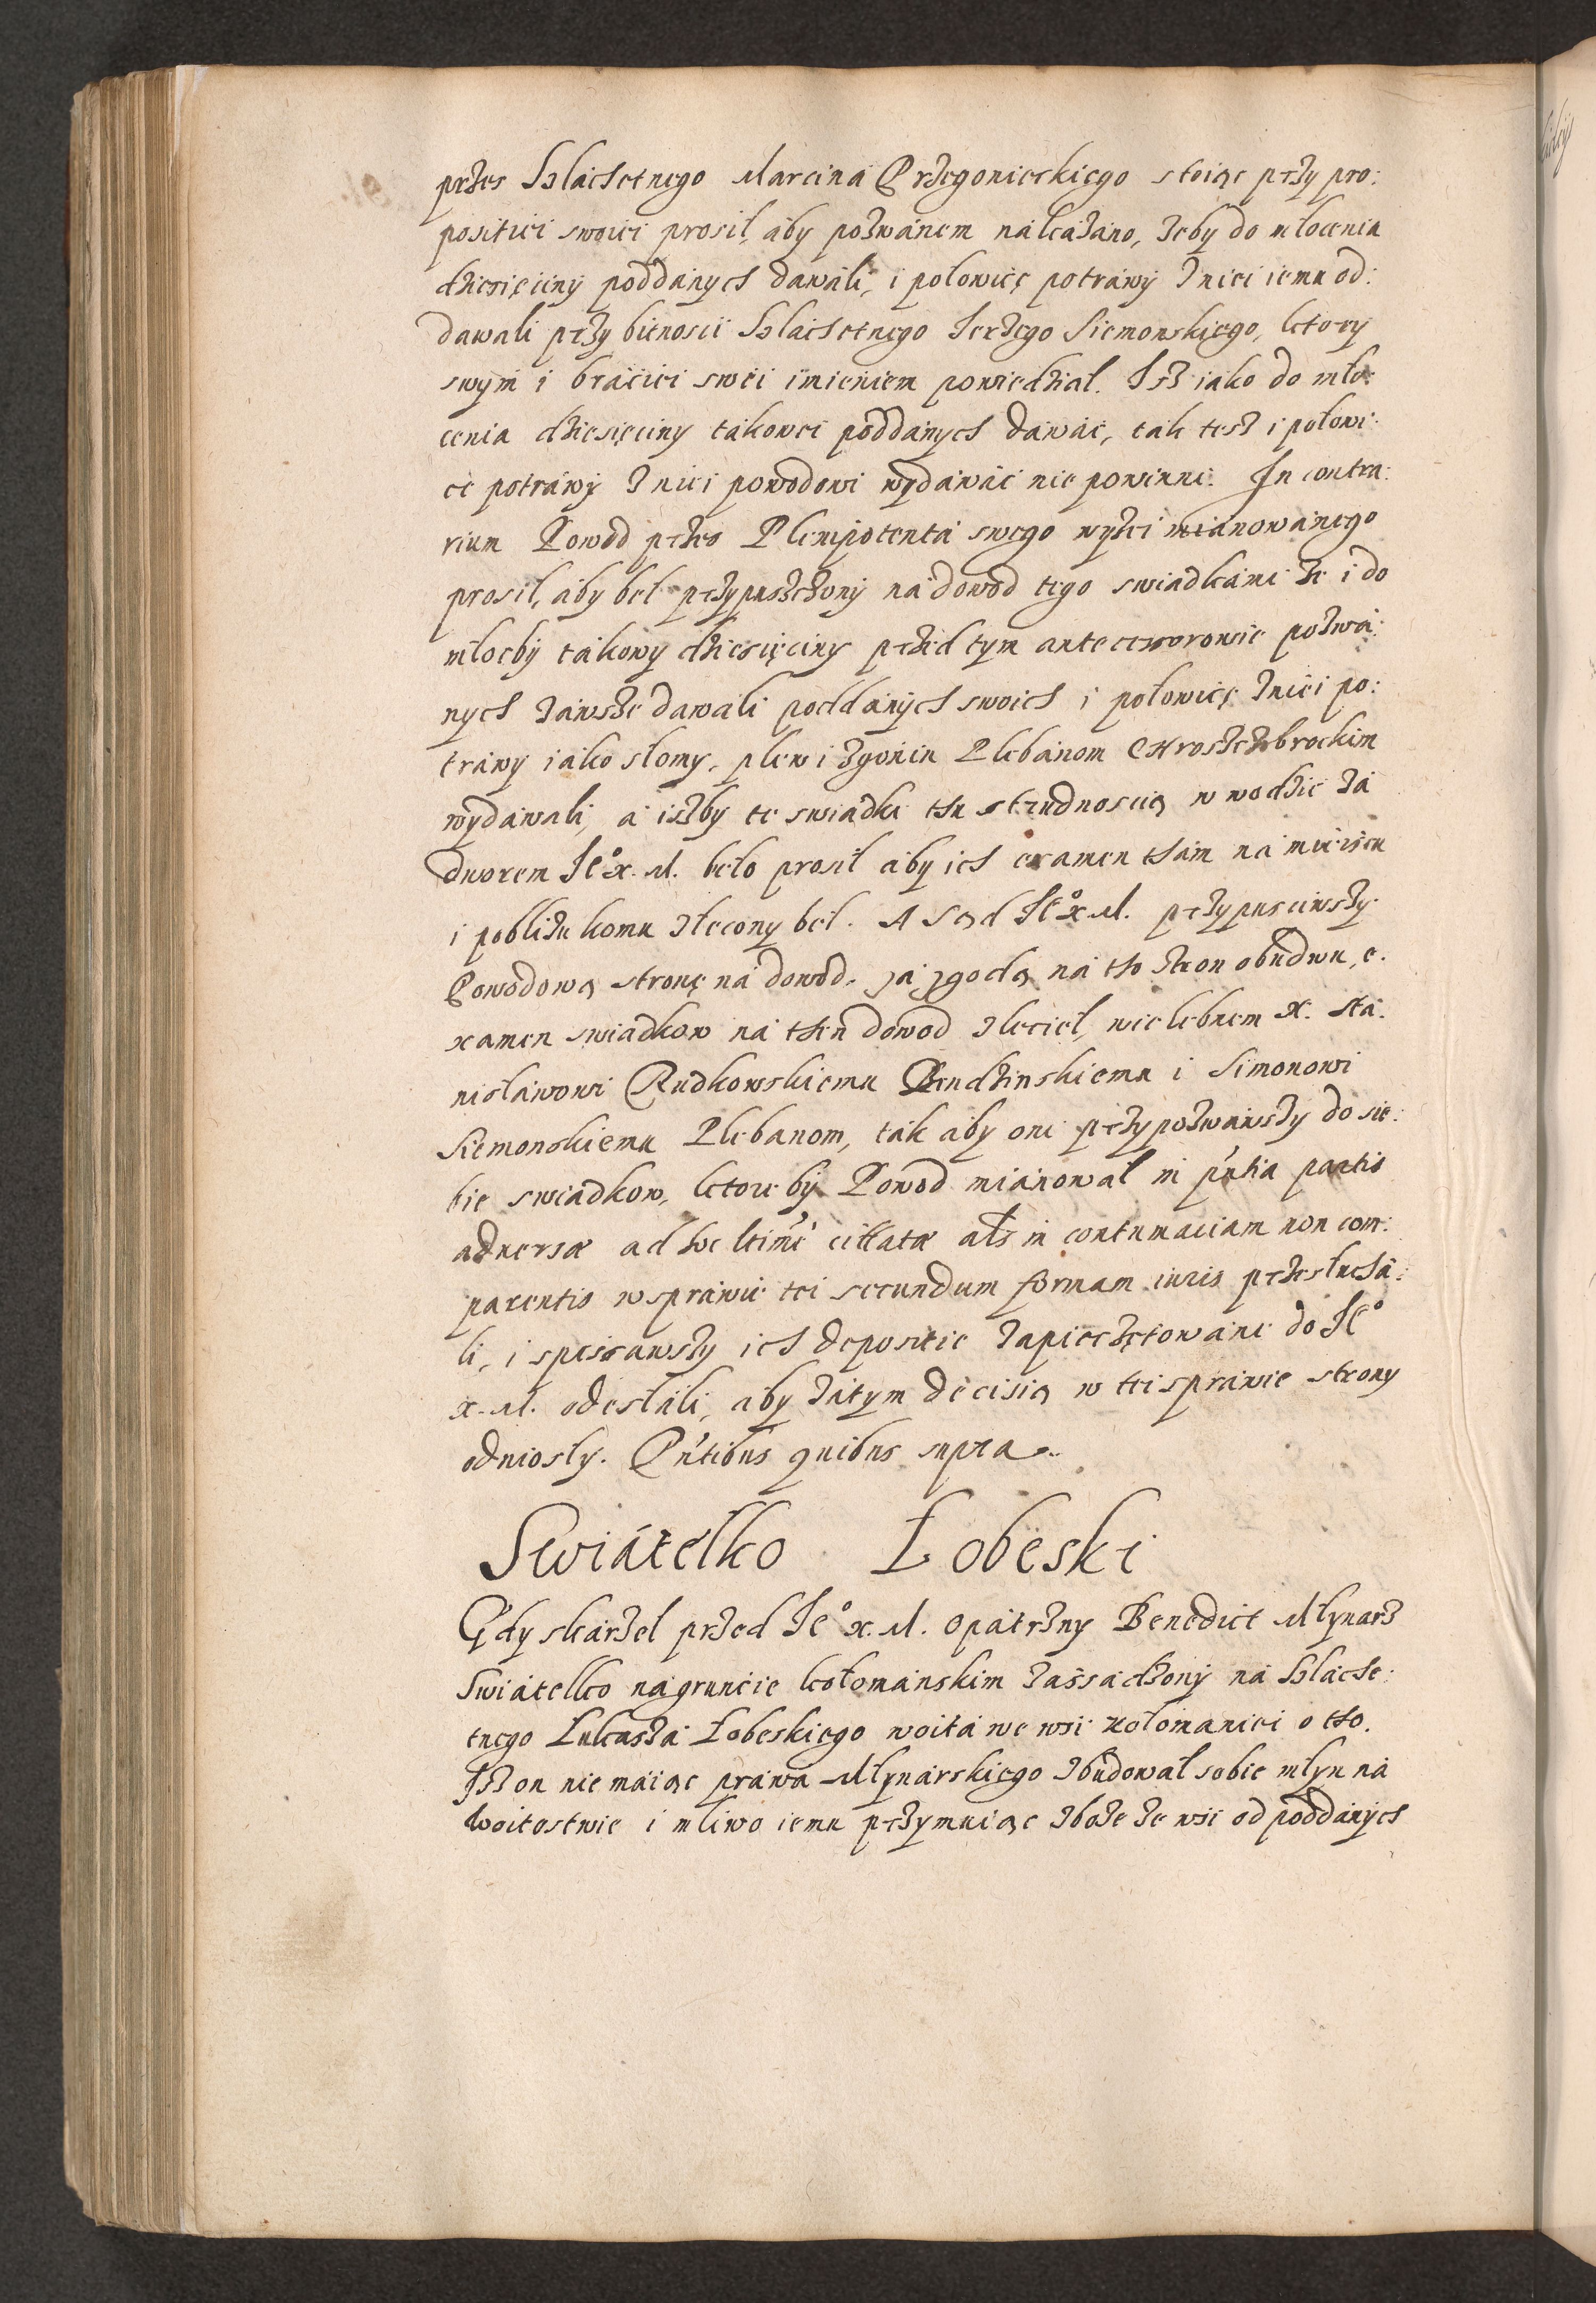 przes Szlachetnego Marcina Przegonickiego stoiąc przy pro:
positiei swoiei prosił, aby pozwánem nákazano, zeby do młocenia
dziesięciny poddánych dawáli, i połowicę potráwy z niei iemu od:
dawali przy bitnoscii Szlachetnego Jerzego Siemonskiego, ktory
swym i bráciei swei imieniem powiedział. Isz iako do mło:
cenia dziesięciny tákowei poddánych dáwáć, tak tesz i połowi:
ce potráwy z niei powodowi wydáwáć nie powinni. In contra:
rium Powod przes Plenipotentá swego wyżei miánowánego
prosił, aby beł przypuszczony ná dowod tego swiadkámi że i do
młocby tákowy dziesięciny przed tym antecessorowie pozwá:
nych záwsze dawáli poddánych swoich i połowicę z niei po:
trawy iako słomy, plew i zgonin Plebánom Chroszczobrockim
wydáwali, á iszby te swiadki thu s trudnoscią w wodzie zá
dworem Je° x. M. beło prosił aby ich examen thám ná mieiscu
i poblizu komu zlecony beł. A Sąd Je° x. M. przypusciwszy
Powodową stronę ná dowod, zá zgodą ná tho stron obudwu, e.
xamen swiadkow ná then dowod zleciel, wielebnem X. Stá.
nisławowi Rudkowskiemu Bendzinskiemu i Simonowi
Siemonskiemu Plebanom, tak aby oni przypozwáwszy do sie:
bie swiadkow, ktore by Powod miánował in pńtia partis
aduersæ ad hoc ltimé cittatæ als in contumaciam non com:
parentis w spráwie tei secundum formam iuris przesłuchá:
li, i spisawszy ich depositie zapieczętowáne do Je°
x. M. odesłáli, aby zátym decisią w tei spráwie strony
odniosły. Pńtibus quibus supra.
Swiátełko Łobeski
Gdy skarżel przed Je° x. M. opátrzny Benedict Młynarz
Swiatełko ná gruncie kołomanskim zássadzony ná Szlache:
tnego Łukaszá Łobeskiego woitá we wsi Kołomaniei o tho.
Isz on nie maiąc práwa Młynárskiego zbudował sobie młyn ná
woitostwie i mliwo iemu przymuiąc zboże ze wsi od poddánych